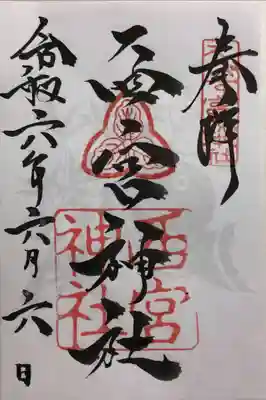 奉拝
西宮神社
西宮
神社
令和六年六月六日